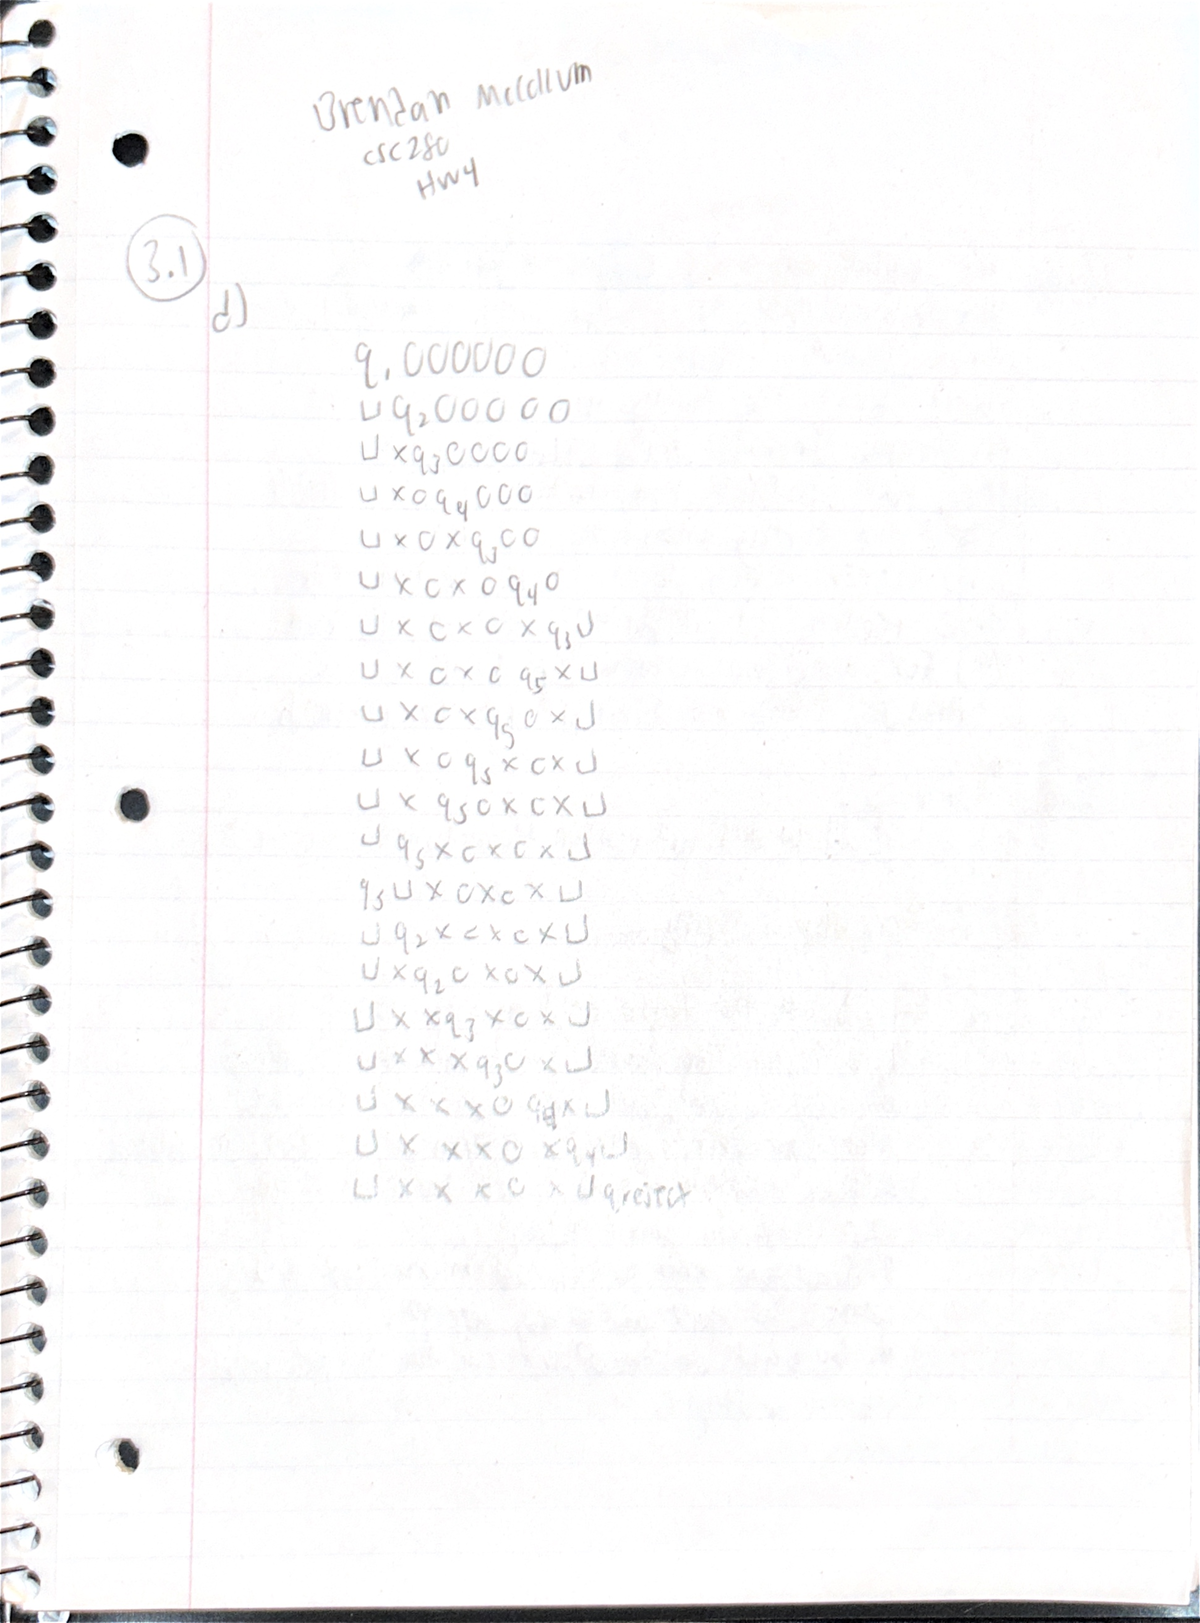 Brendan McCollum
CSC280
HW4
3.1
d)
q₁000000
⊔q₂00000
⊔xq₃0000
⊔x0q₄000
⊔x0xq₃00
⊔x0x0q₄0
⊔x0x0xq₃⊔
⊔x0x0q₅x⊔
⊔x0xq₅0x⊔
⊔x0q₅x0x⊔
⊔xq₅0x0x⊔
⊔q₅x0x0x⊔
q₅⊔x0x0x⊔
⊔q₂x0x0x⊔
⊔xq₂0x0x⊔
⊔xxq₃x0x⊔
⊔xxxq₃0x⊔
⊔xxx0q₄x⊔
⊔xxx0xq₄⊔
⊔xxx0x⊔qreject